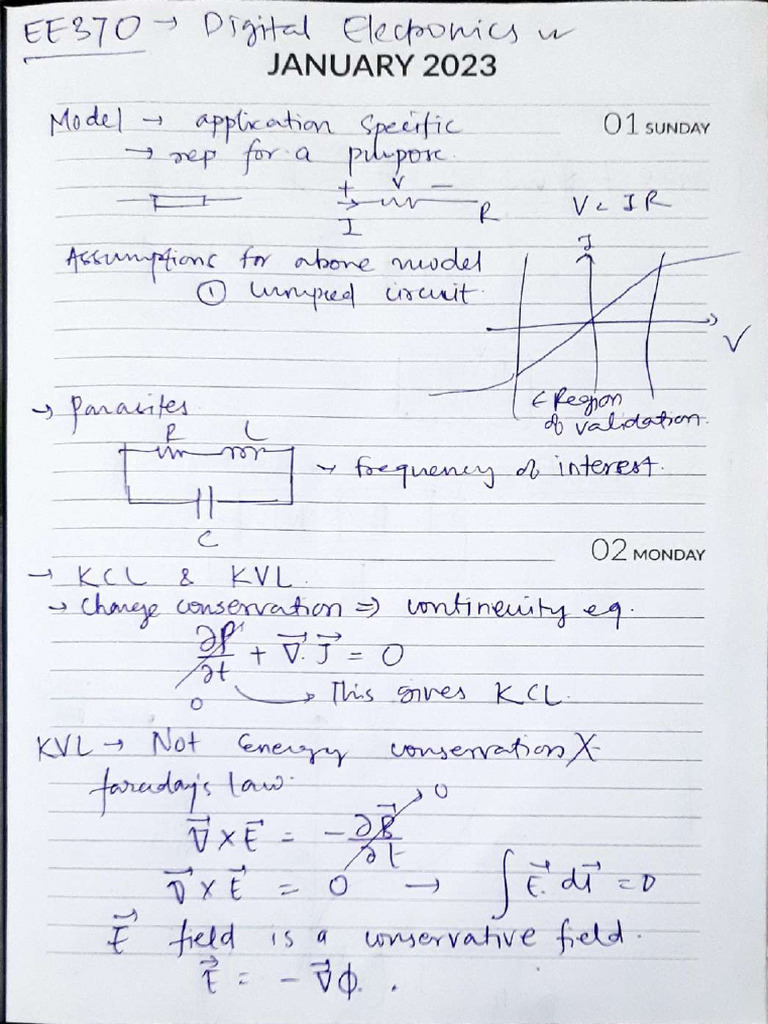 EE370 → Digital Electronics
JANUARY 2023
01 SUNDAY
Model → application specific
→ rep for a purpose.
+ V −
I R
V = IR
Assumptions for above model
① Lumped circuit.
I
V
← Region
of validation.
→ Parasites
R L
C
→ frequency of interest.
02 MONDAY
→ KCL & KVL.
→ Charge conservation ⇒ continuity eq.
∂ρ/∂t + ∇⃗.J⃗ = 0
0 → This gives KCL.
KVL → Not Energy conservation X
faraday's law.
∇⃗ × E⃗ = − ∂B⃗/∂t → 0
∇⃗ × E⃗ = 0 → ∫ E⃗. dl⃗ = 0
E⃗ field is a conservative field.
E⃗ = − ∇⃗ϕ.